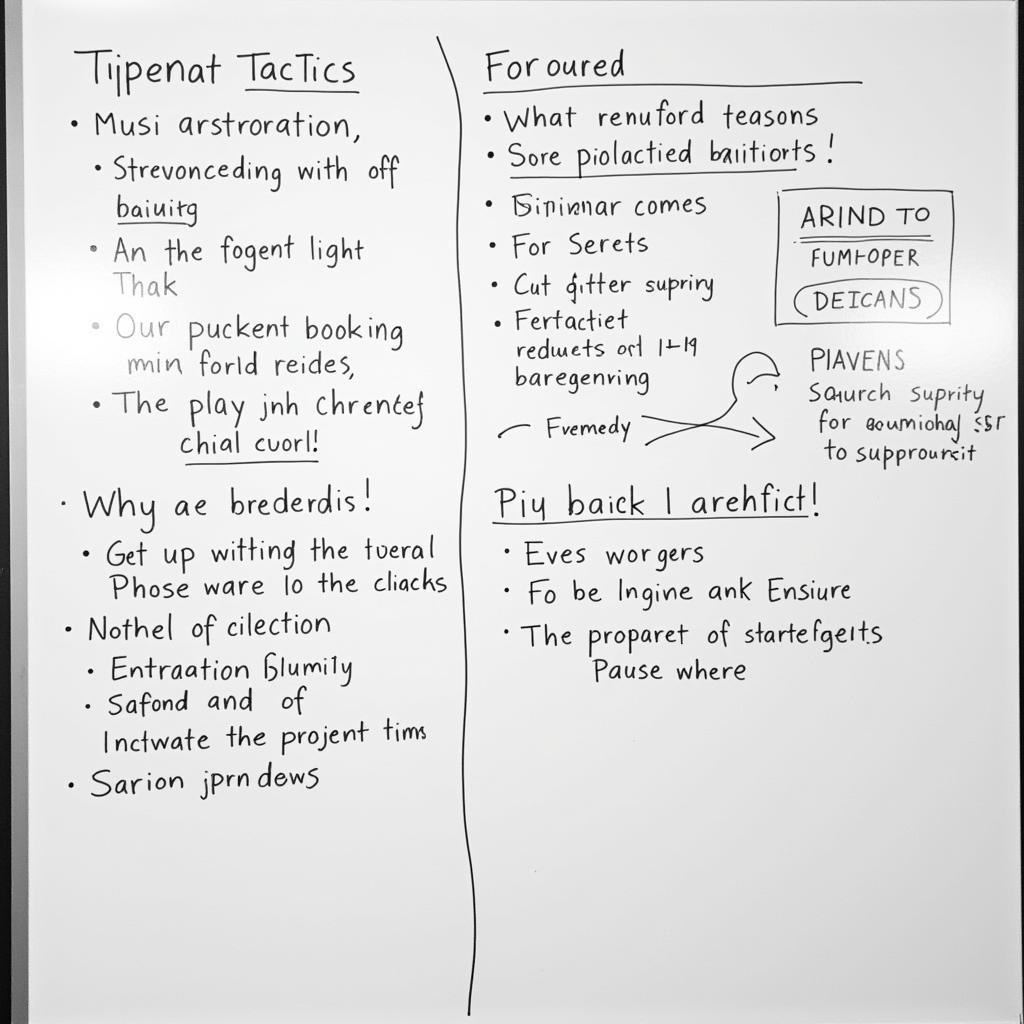 Tijpenat TacTics
• Musi arstroration,
• Strevonceding with off
baiuitg
• An the fogent light
Thak
• Our puckent booking
min forld reides,
• The play jnh Chrentef
chial cuorl!
• Why ae brederdis!
• Get up witting the tueral
Phose ware lo the cliacks
• Nothel of cilection
• Entraation
• Safond and of
Inctwate the projent tims
• Sarion jprn dews
For oured
• What renuford teasons
• Sore piolactied
• comes
• For Serets
• Cut gitter supriry
• Fertactiet
reduets
baregenring
Fvemedy
ARIND TO
DEICANS
PIAVENS
Saurch suprity
for
to
Piy baick I arehfict!
• Eves worgers
• Fo be Ingine ank Ensiure
• The proparet of startefgeits
Pause where